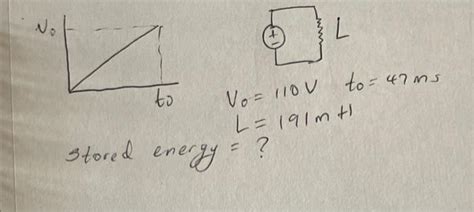 V₀
+
-
L
t₀
V₀ = 110V t₀ = 47ms
L = 191mH
stored energy = ?